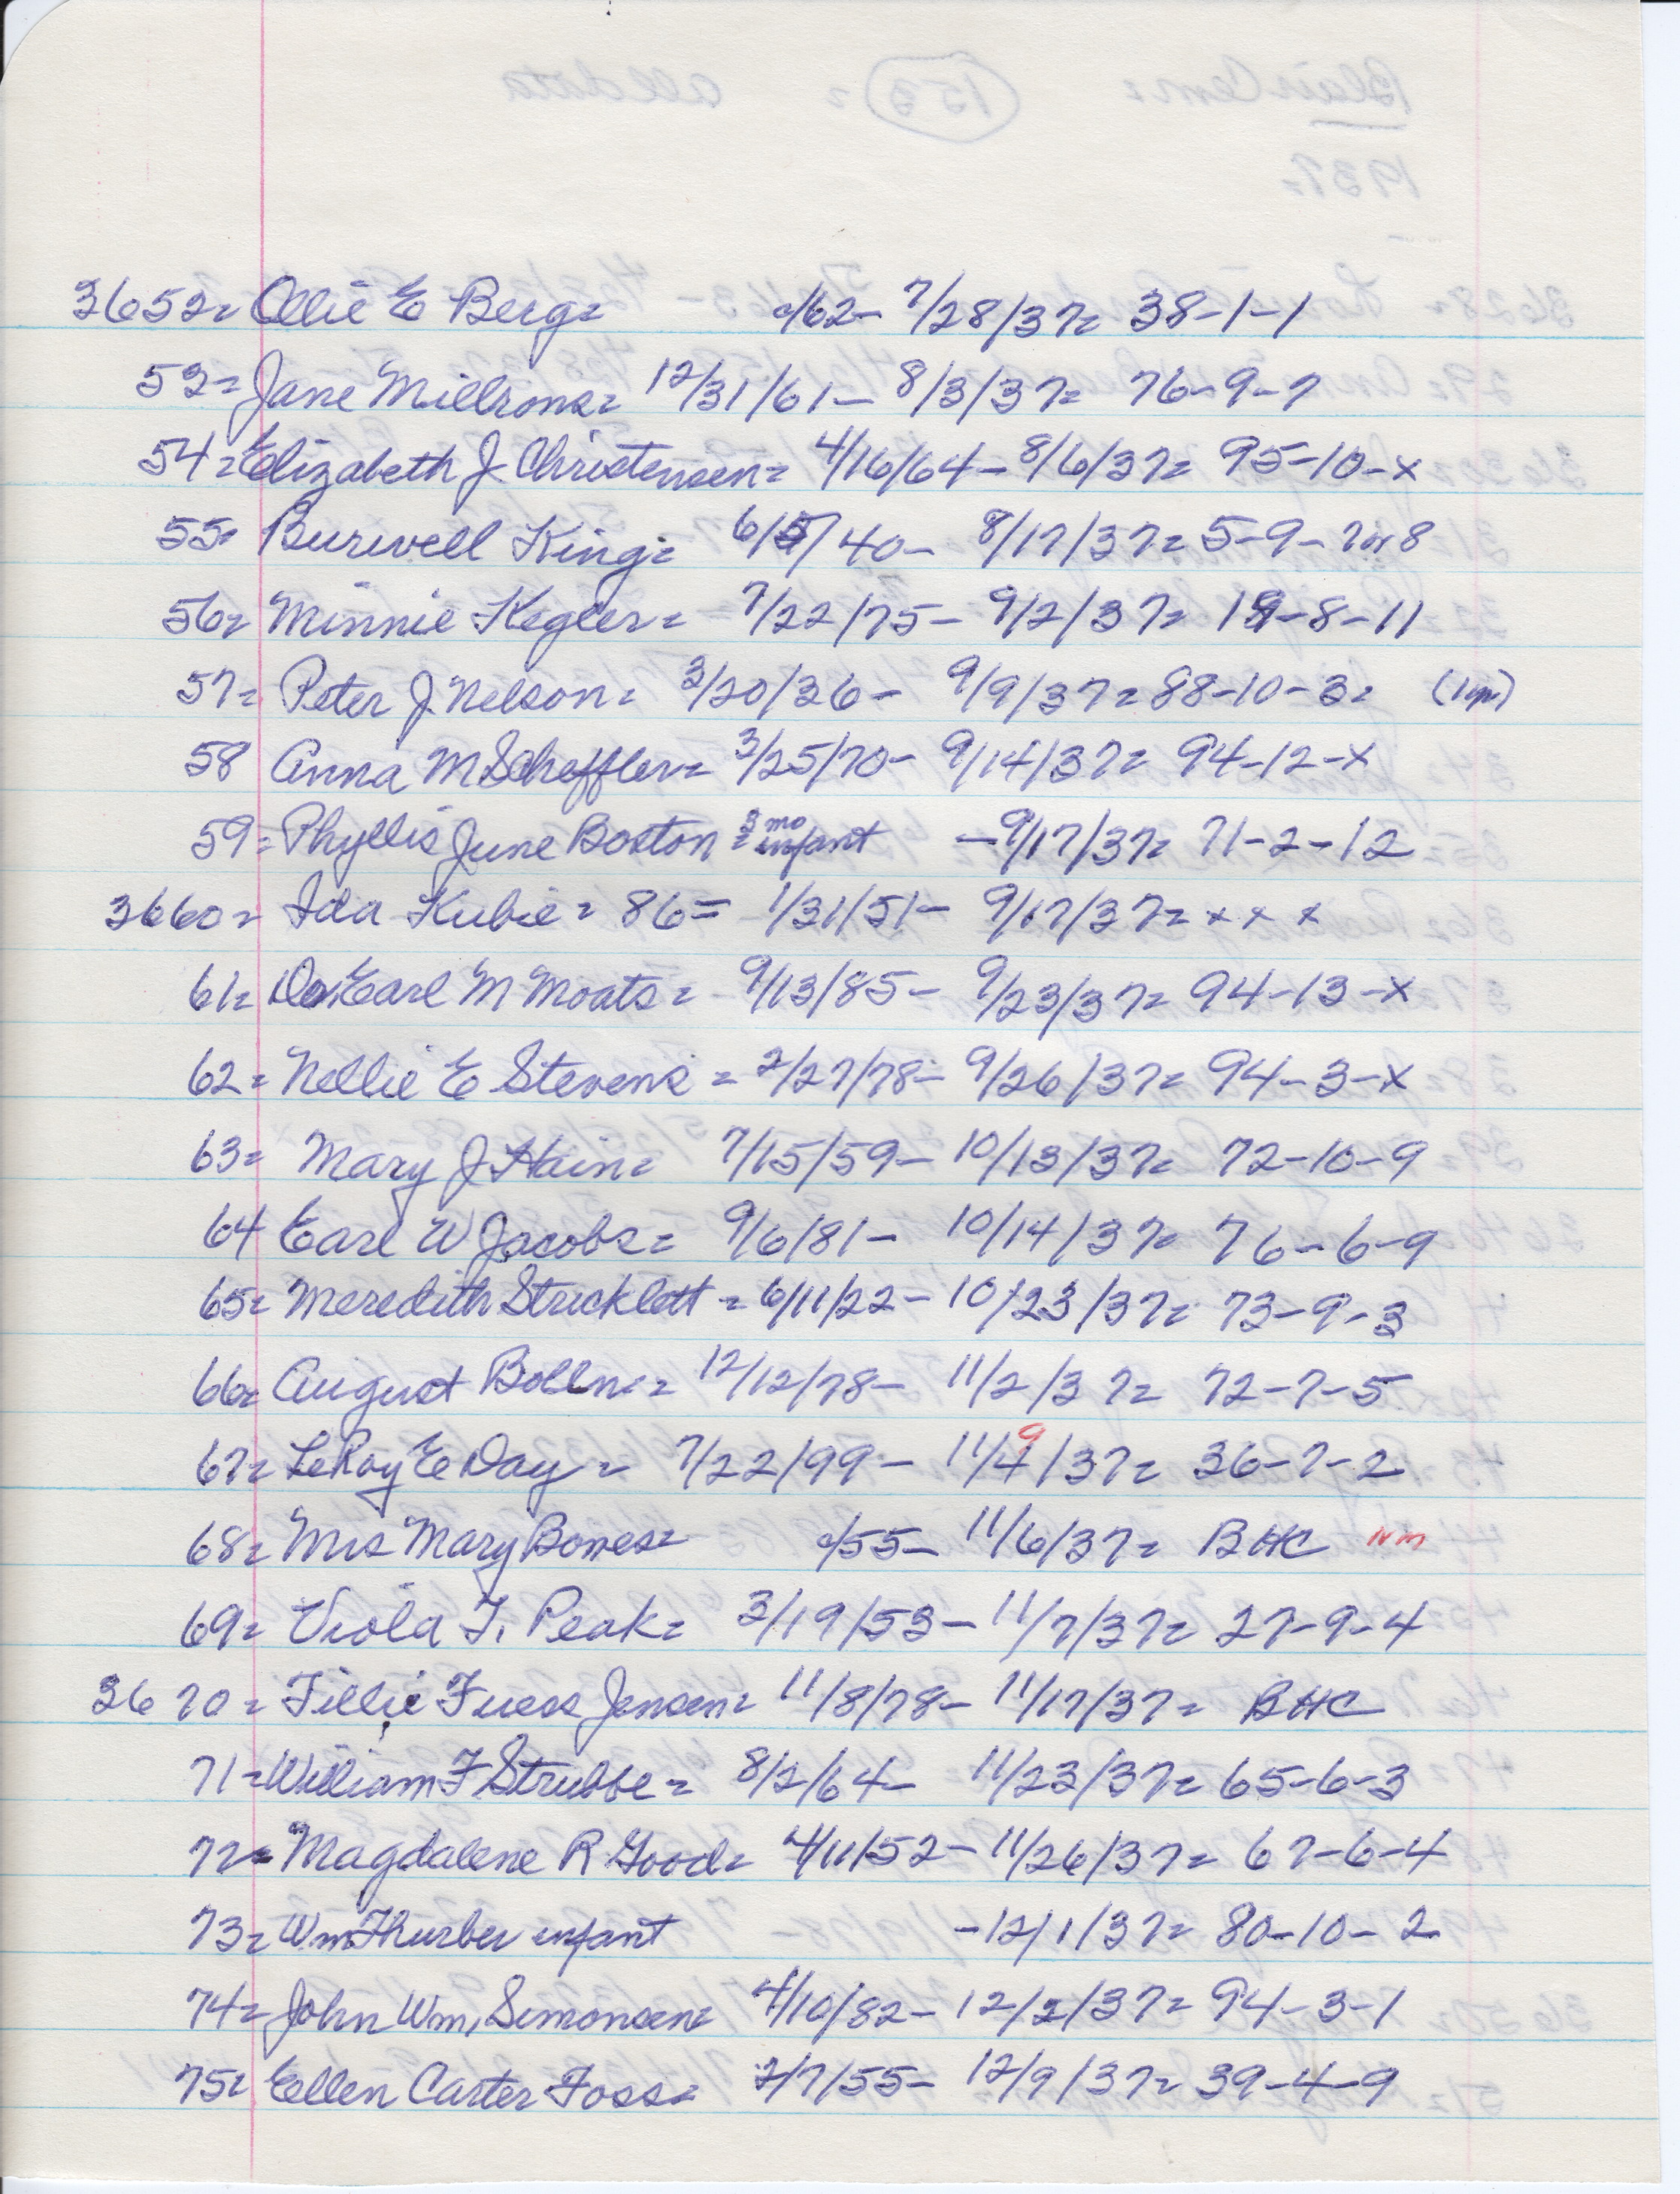 3652= Ollie E Berg= c/62- 7/28/37= 38-1-1
53= Jane Millrons= 12/31/61- 8/3/37= 76-9-7
54= Elizabeth J Christensen= 4/16/64- 8/6/37= 95-10-x
55= Burwell King= 6/5/40- 8/17/37= 5-9-7 or 8
56= Minnie Kegler= 7/22/75- 9/2/37= 19-8-11
57= Peter J Nelson= 3/20/36- 9/9/37= 88-10-3=
58 Anna M Scheffler= 3/25/70- 9/14/37= 94-12-x
59= Phyllis June Boston = 3 mo infant -9/17/37= 71-2-12
3660= Ida Kubie= 86= 1/31/51- 9/17/37= x x x
61= Dr. Earl M Moats= 9/13/85- 9/23/37= 94-13-x
62= Nellie E Stevens = 2/27/78- 9/26/37= 94-3-x
63= Mary J Hain= 7/15/59- 10/13/37= 72-10-9
64 Earl W Jacobs= 9/6/81- 10/14/37= 76-6-9
65= Meredith Stricklett = 6/11/22- 10/23/37= 73-9-3
66= August Bolln= 12/12/78- 11/2/37= 72-7-5
67= LeRoy E Day= 7/22/99- 11/4/37= 36-7-2
9
68= Mrs Mary Bowes= c/55- 11/6/37= BHC nm
69= Viola F. Peak= 3/19/53- 11/7/37= 27-9-4
3670= Tillie Fuess Jensen= 11/8/78- 11/17/37= BHC
71= William F Strubbe= 8/2/64- 11/23/37= 65-6-3
72= Magdalene R Good= 4/11/52- 11/26/37= 67-6-4
73= Wm Thurber infant -12/1/37= 80-10-2
74= John Wm. Simonsen= 4/10/82- 12/2/37= 94-3-1
75= Ellen Carter Foss= 2/7/55- 12/9/37= 39-4-9